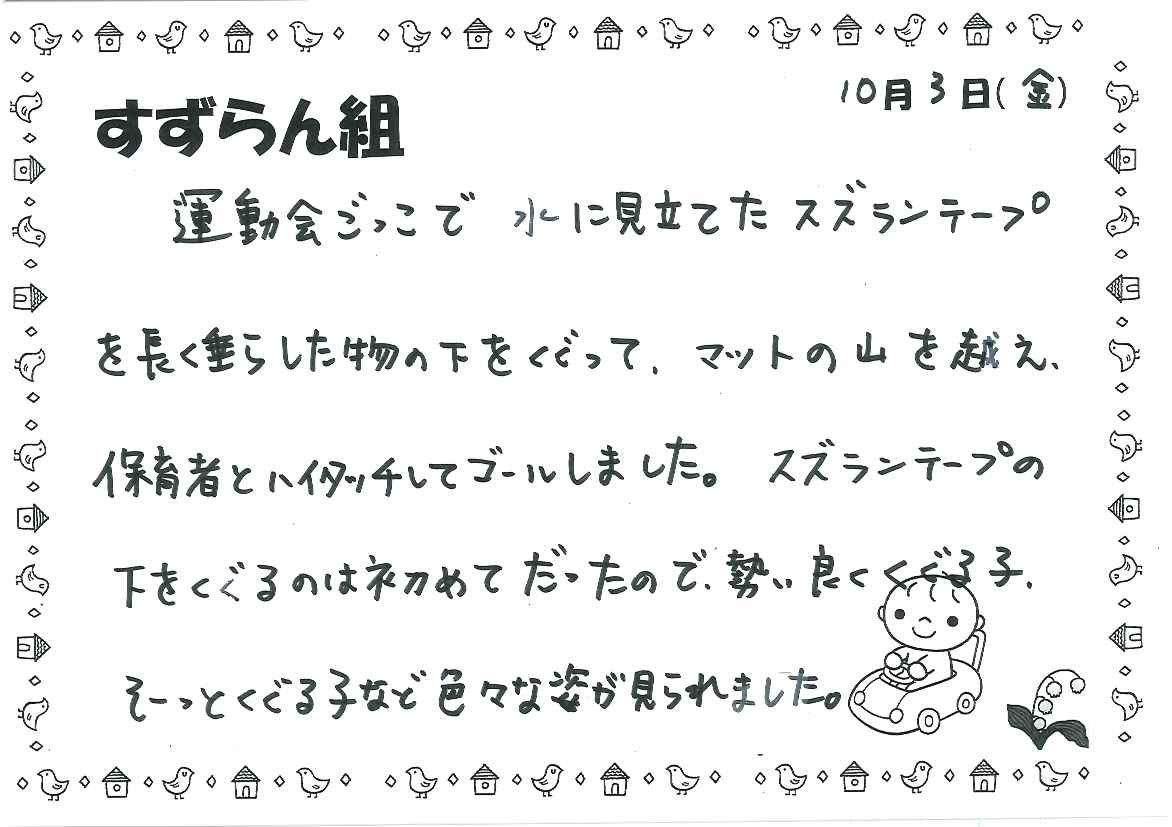 10月3日(金)
すずらん組
運動会ごっこで 水に見立てたスズランテープ
を長く垂らした物の下をくぐって、マットの山を越え、
保育者とハイタッチしてゴールしました。 スズランテープの
下をくぐるのは初めてだったので、勢い良くくぐる子、
そーっとくぐる子など色々な姿が見られました。